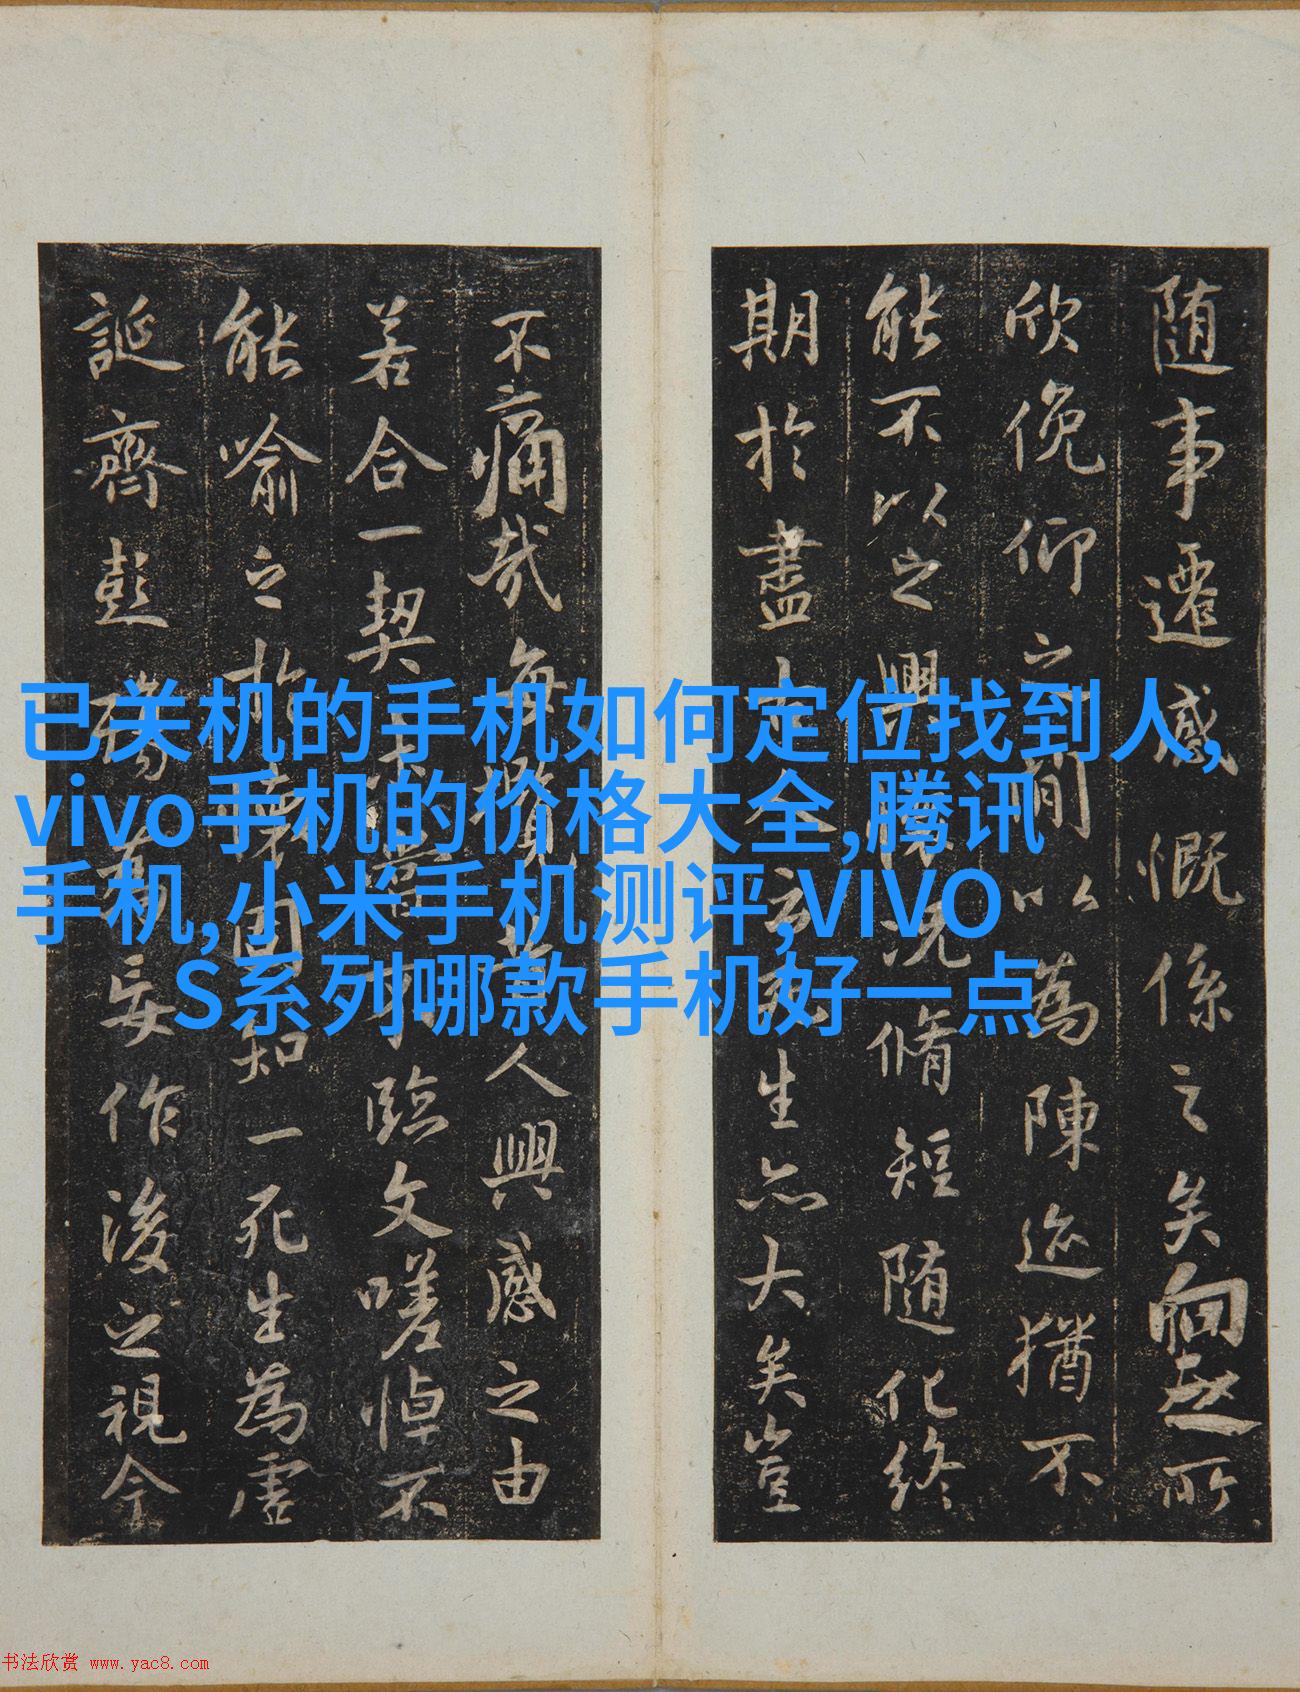 随事遷感慨係之矣向之所
欣俛仰之閒以為陳迹猶不
能不以之興懷況脩短随化終
期於盡古人云死生亦大矣豈
不痛哉每攬昔人興感之由
若合一契未嘗不臨文嗟悼不
能喻之於懷固知一死生為虛
誕齊彭殤為妄作後之視今
已关机的手机如何定位找到人,
vivo手机的价格大全,腾讯
手机,小米手机测评,VIVO
S系列哪款手机好一点
书法欣赏 www.yac8.com